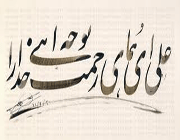 علی ای همای رحمت تو چه آیتی خدا را